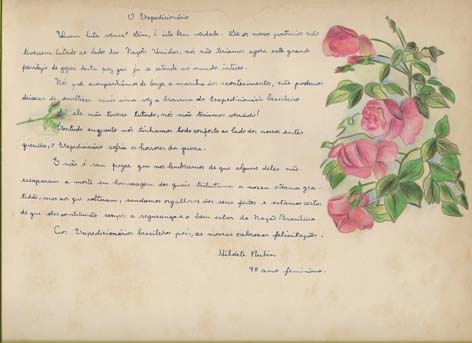 O Expedicionário
"Quem luta vence" Sim, é isto bem verdade. Se os nossos patrícios não
tivessem lutado ao lado das Nações Unidas, nós não teriamos agora este grande
privilégio de gozar desta paz que já se estende no mundo inteiro.
Nós que acompanhamos de longe a marcha dos acontecimentos, não podemos
deixar de enaltecer mais uma vez a bravura do expedicionário brasileiro
ele não tivesse lutado, nós não teriamos vencido!
Contudo enquanto nós tinhamos todo conforto ao lado dos nossos entes
queridos, o expedicionário sofria os horrores da guerra.
E não é sem pezar que nos lembramos de que alguns deles não
escaparam a morte em homenagem dos quais tributamos a nossa eterna gra-
tidão, mas aos que voltaram, saudamos orgulhosos dos seus feitos e estamos certos
de que eles constituirão sempre a segurança e o bem estar da Nação Brasileira
Aos expedicionários brasileiros pois, as nossas calorosas felicitações.
Hildete Rubin
4º ano feminino.